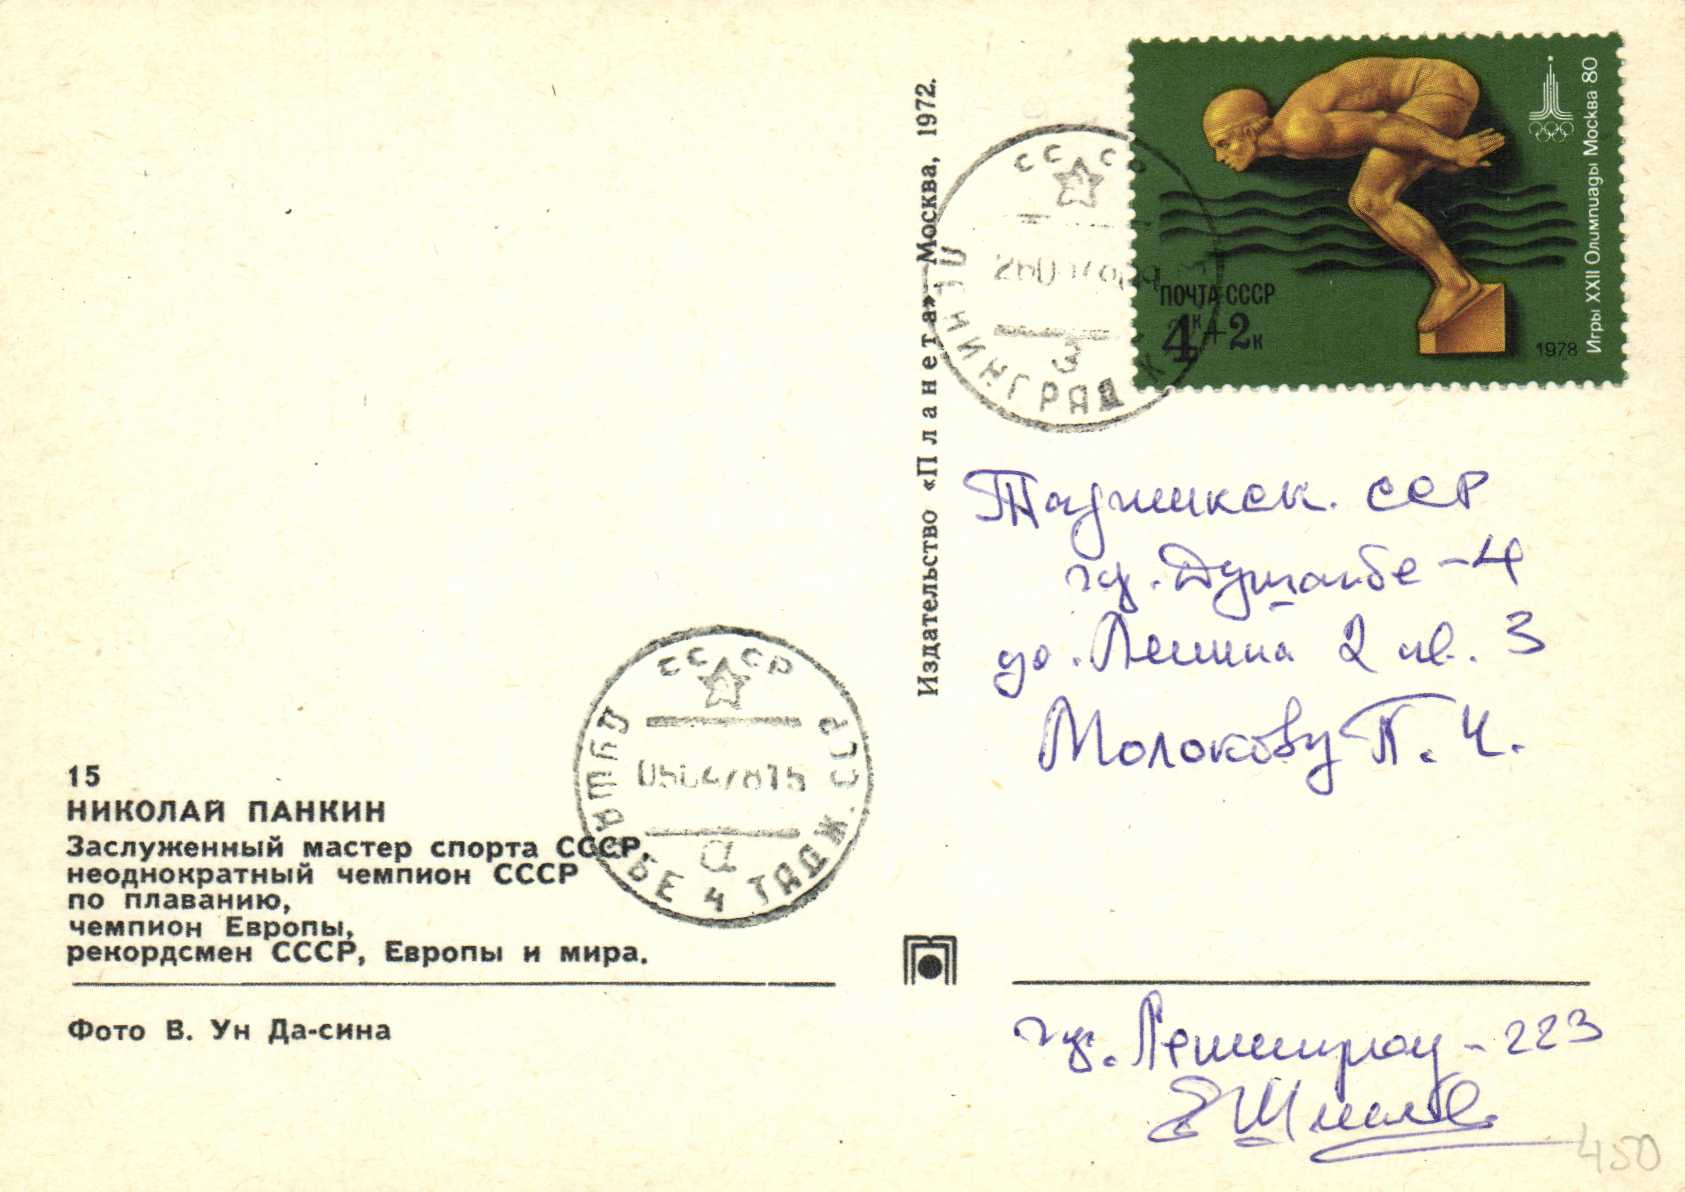 Издательство «Планета» Москва, 1972.
Игры XXII Олимпиады Москва 80
ПОЧТА СССР
4к+2к
1978
СССР
ЛЕНИНГРАД
3
Таджикск. ССР
гор. Душанбе-4
до. Ленина 2 кв. 3
Молокову П. Ч.
СССР
05047815
а
ДУШАНБЕ 4 ТАДЖ. ССР
15
НИКОЛАЙ ПАНКИН
Заслуженный мастер спорта СССР,
неоднократный чемпион СССР
по плаванию,
чемпион Европы,
рекордсмен СССР, Европы и мира.
Фото В. Ун Да-сина
гор. Ленинград-223
450